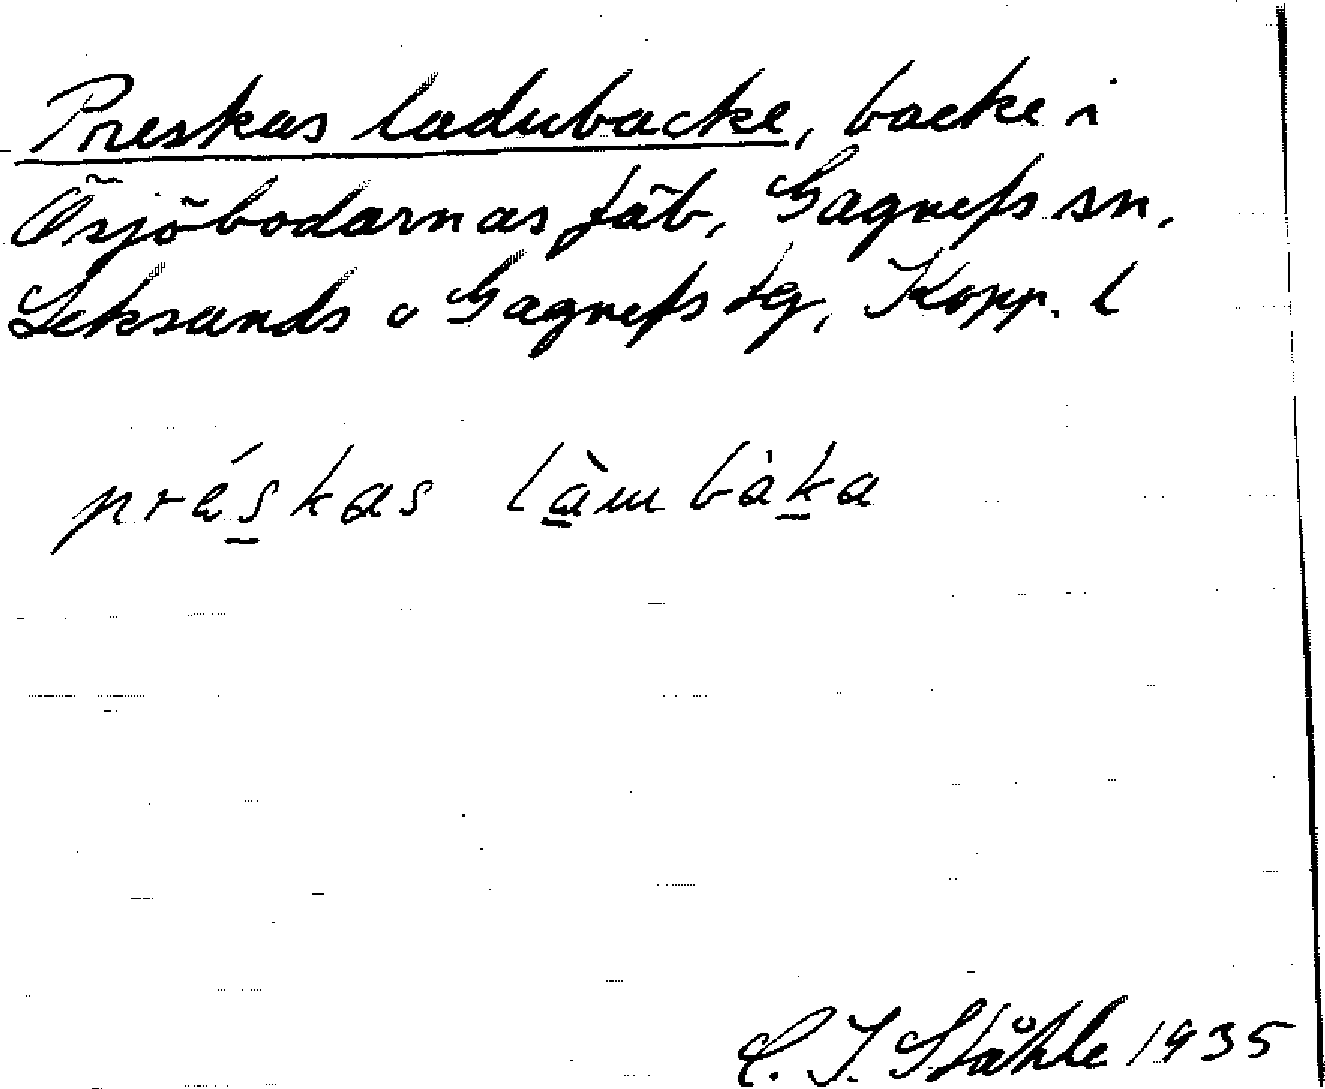 Preskas ladubacke, backe i
Ösjöbodarnas fäb, Gagnefs sn.
Leksands o Gagnefs tg, Kopp. l
préskas làmbàka
C. I. Ståhle 1935